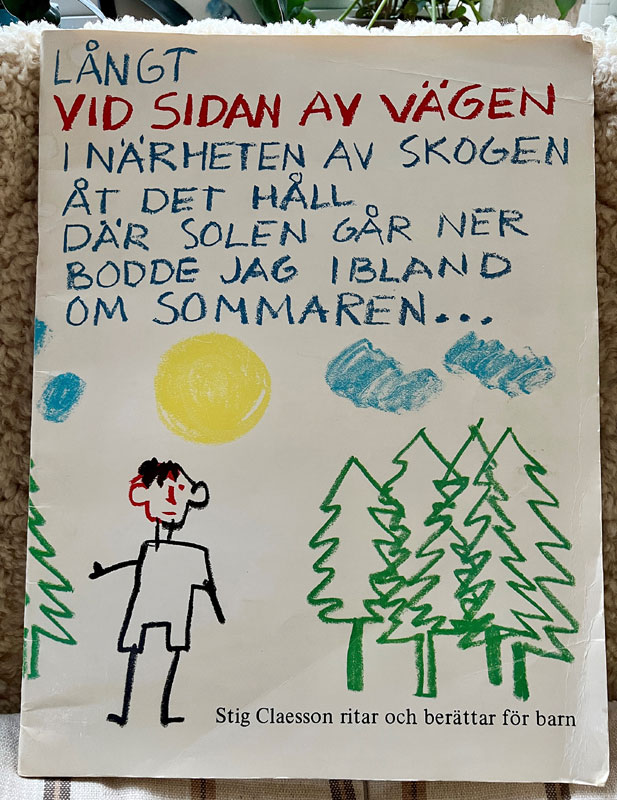 LÅNGT
VID SIDAN AV VÄGEN
I NÄRHETEN AV SKOGEN
ÅT DET HÅLL
DÄR SOLEN GÅR NER
BODDE JAG IBLAND
OM SOMMAREN...
Stig Claesson ritar och berättar för barn